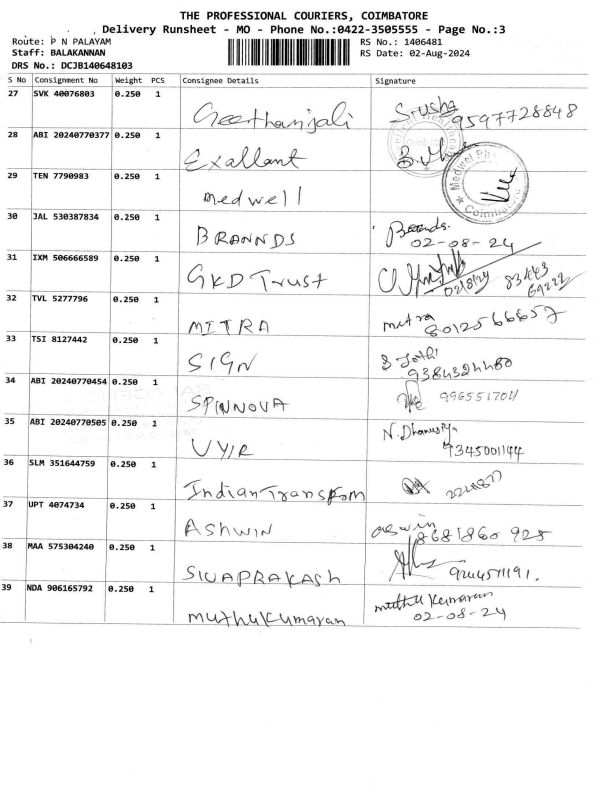 THE PROFESSIONAL COURIERS, COIMBATORE
Delivery Runsheet - MO - Phone No.:0422-3505555 - Page No.:3
Route: P N PALAYAM
RS No.: 1406481
Staff: BALAKANNAN
RS Date: 02-Aug-2024
DRS No.: DCJB140648103
S No Consignment No Weight PCS Consignee Details Signature
27 SVK 40076803 0.250 1 Geethanjali Srusha
9597728848
28 ABI 20240770377 0.250 1 Exallant
29 TEN 7790983 0.250 1 Medwell
Medwel Ph
Coimba
30 JAL 530387834 0.250 1 BRANNDS Brands.
02-08-24
31 IXM 506666589 0.250 1 GKD Trust
02/8/24 83443
69222
32 TVL 5277796 0.250 1 MITRA mitra
8012566657
33 TSI 8127442 0.250 1 SIGN S Jothi
9384324480
34 ABI 20240770454 0.250 1 SPINNOVA
35 ABI 20240770505 0.250 1 UYIR N. Dhanusiya
9345001144
36 SLM 351644759 0.250 1 Indian Transfom
37 UPT 4074734 0.250 1 ASHWIN aswin
8681860 925
38 MAA 575304240 0.250 1 SIVAPRAKASH
39 NDA 906165792 0.250 1 muthukumaran muthu kumaran
02-08-24